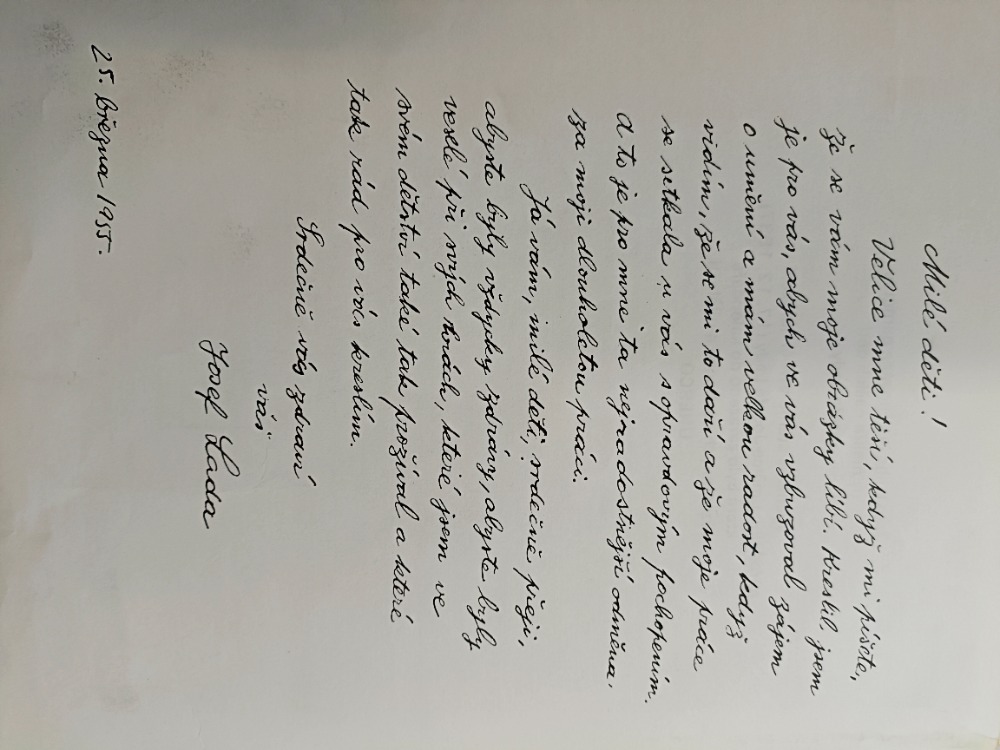 Milé děti!
Velice mne těší, když mi píšete,
že se vám moje obrázky líbí. Kreslil jsem
je pro vás, abych ve vás vzbuzoval zájem
o umění a mám velkou radost, když
vidím, že se mi to daří a že moje práce
se setkala u vás s opravdovým pochopením.
A to je pro mne ta nejradostnější odměna
za moji dlouholetou práci.
Já vám, milé děti, srdečně přeji,
abyste byly vždycky zdrávy, abyste byly
veselé při svých hrách, které jsem ve
svém dětství také tak prožíval a které
tak rád pro vás kreslím.
Srdečně vás zdraví
váš
Josef Lada
25. března 1955.